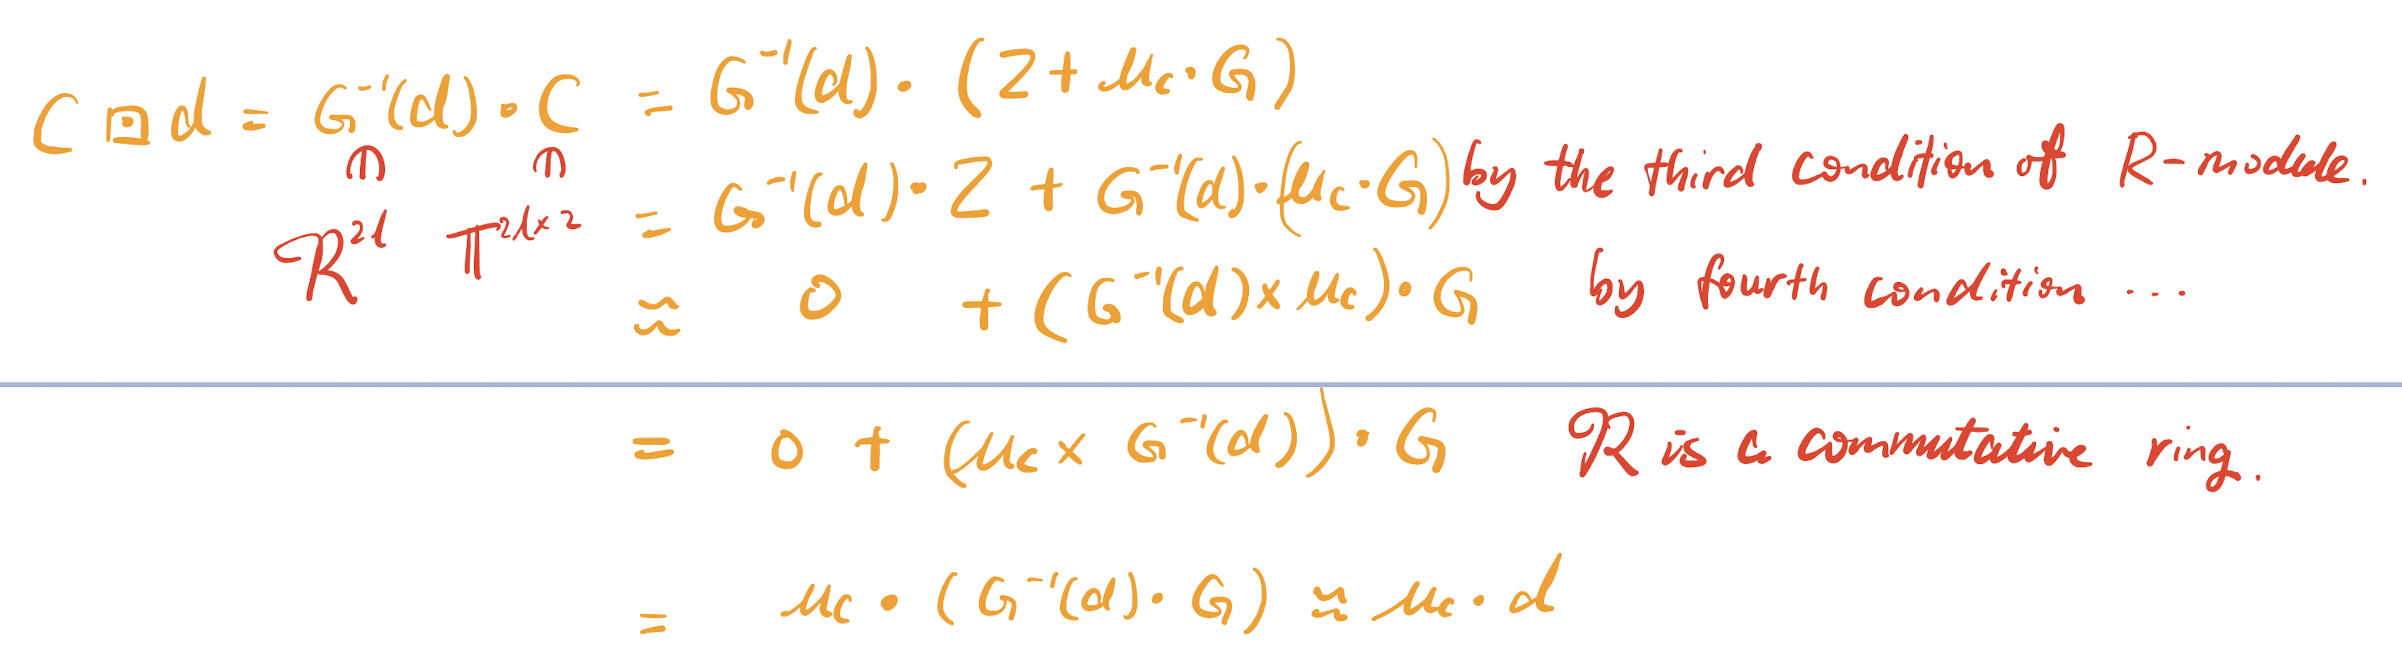 C ⊡ d = G⁻¹(d) · C = G⁻¹(d) · (Z + μc · G)
∈ ∈
R²ˡ T²ˡˣ²
= G⁻¹(d) · Z + G⁻¹(d) · (μc · G) by the third condition of R-module.
≈ 0 + (G⁻¹(d) × μc) · G by fourth condition ...
= 0 + (μc × G⁻¹(d)) · G R is a commutative ring.
= μc · (G⁻¹(d) · G) ≈ μc · d